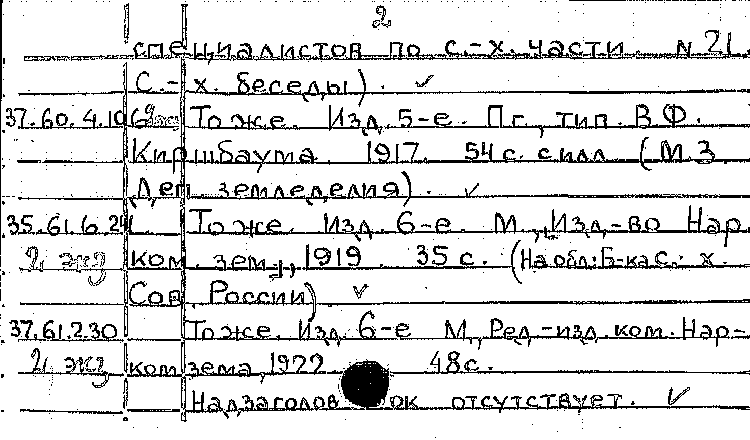 2
специалистов по с.-х. части. N 21.
С.-х. беседы). ✓
37.60.4.106 То же. Изд. 5-е. Пг., тип. В.Ф.
Киршбаума 1917. 54 с. с илл. (М.З.
Деп. земледелия). ✓
35.61.6.24 То же. Изд. 6-е. М., Изд-во Нар.
2 экз ком. зем., 1919. 35 с. (На обл: Б-ка с.-х.
Сов. России) ✓
37.61.2.30 То же. Изд. 6-е М., Ред.-изд. ком. Нар-
2 экз комзема, 1922 48 с.
Надзаголовок отсутствует. ✓